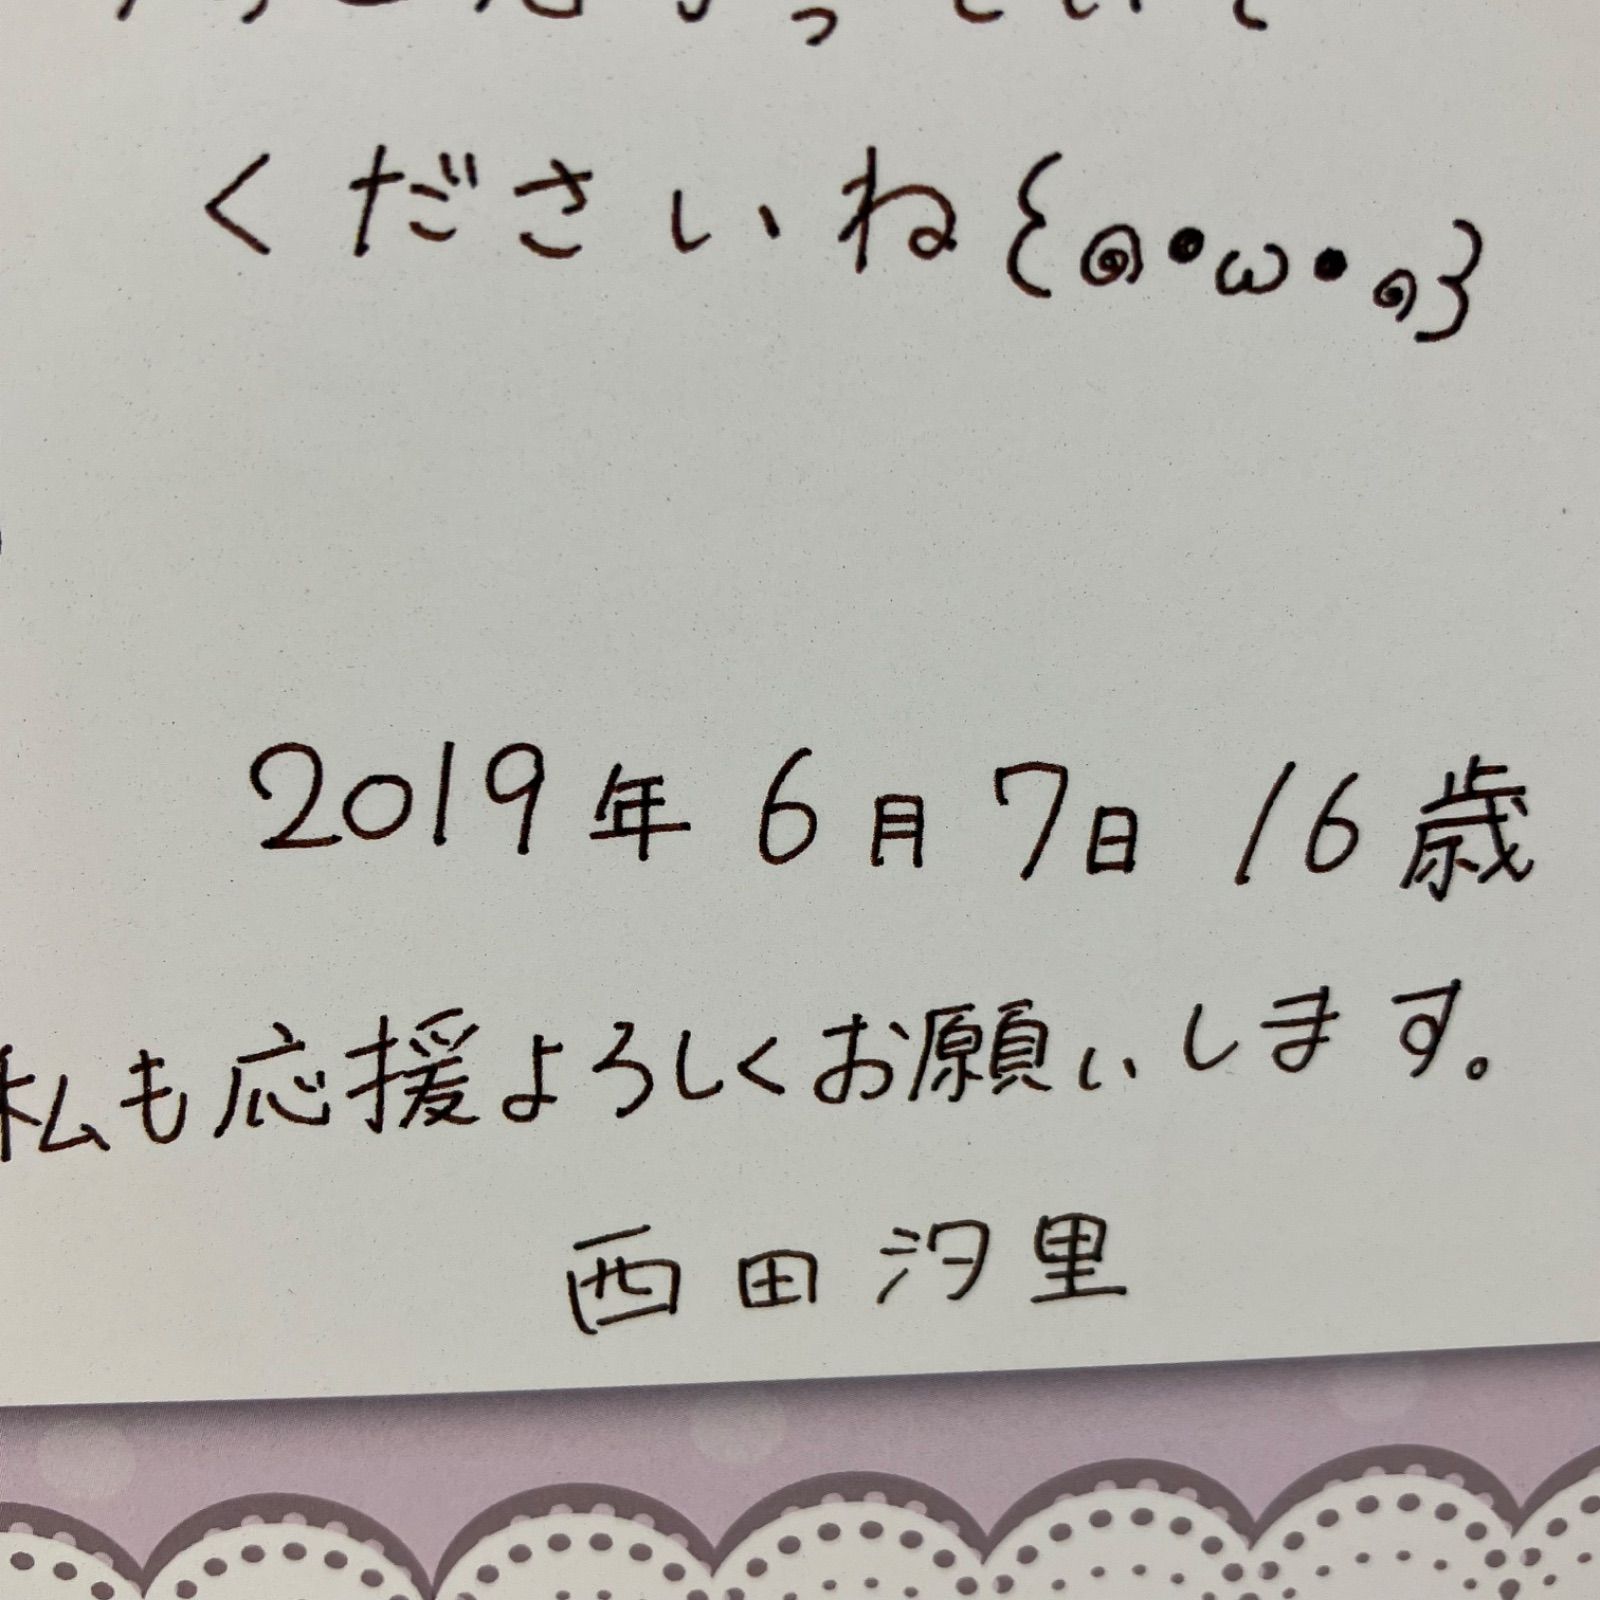 くださいね{๑•ω•๑}
2019年6月7日 16歳
私も応援よろしくお願いします。
西田汐里